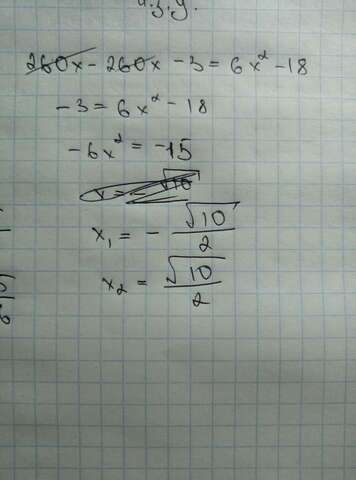 260x - 260x - 3 = 6x² - 18
-3 = 6x² - 18
-6x² = -15
x₁ = - √10/2
x₂ = √10/2